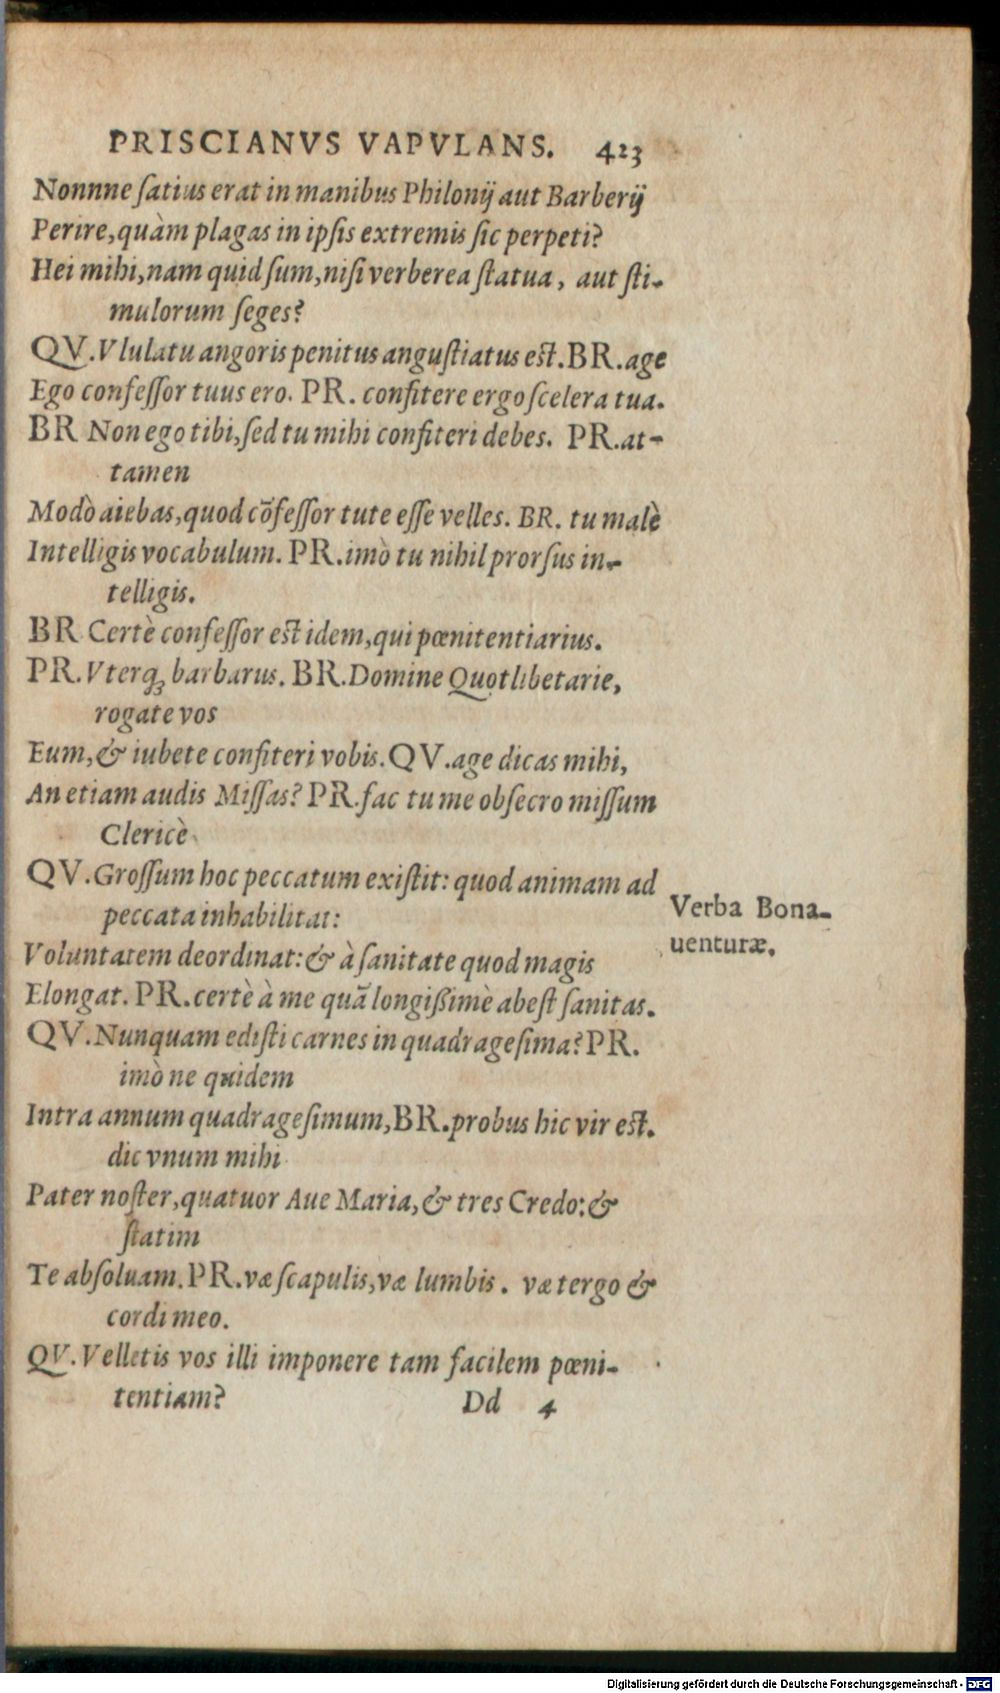 PRISCIANVS VAPVLANS. 423
Nonnne ſatius erat in manibus Philonij aut Barberij
Perire, quàm plagas in ipſis extremis ſic perpeti?
Hei mihi, nam quid ſum, niſi verberea ſtatua, aut ſti-
mulorum ſeges?
QV. Vlulatu angoris penitus anguſtiatus eſt. BR. age
Ego confeſſor tuus ero. PR. confitere ergo ſcelera tua.
BR Non ego tibi, ſed tu mihi confiteri debes. PR. at-
tamen
Modò aiebas, quod cōfeſſor tute eſſe velles. BR. tu malè
Intelligis vocabulum. PR. imò tu nihil prorſus in-
telligis.
BR Certè confeſſor eſt idem, qui pœnitentiarius.
PR. Vterq; barbarus. BR. Domine Quotlibetarie,
rogate vos
Eum, & iubete confiteri vobis. QV. age dicas mihi,
An etiam audis Miſſas? PR. fac tu me obſecro miſſum
Clericè
QV. Groſſum hoc peccatum exiſtit: quod animam ad
peccata inhabilitat:
Verba Bona-
uenturæ.
Voluntatem deordinat: & à ſanitate quod magis
Elongat. PR. certè à me quā longißimè abeſt ſanitas.
QV. Nunquam ediſti carnes in quadrageſima? PR.
imò ne quidem
Intra annum quadrageſimum, BR. probus hic vir eſt.
dic vnum mihi
Pater noſter, quatuor Aue Maria, & tres Credo: &
ſtatim
Te abſoluam. PR. væ ſcapulis, væ lumbis. væ tergo &
cordi meo.
QV. Velletis vos illi imponere tam facilem pœni-
tentiam?
Dd 4
Digitalisierung gefördert durch die Deutsche Forschungsgemeinschaft - DFG